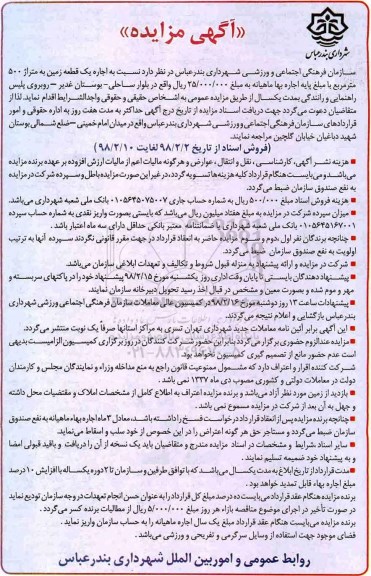 «آگهی مزایده»
شهرداری بندرعباس
سازمان فرهنگی اجتماعی و ورزشی شهرداری بندرعباس در نظر دارد نسبت به اجاره یک قطعه زمین به متراژ ۵۰۰
مترمربع با مبلغ پایه اجاره بها ماهیانه به مبلغ ۲۵/۰۰۰/۰۰۰ ریال واقع در بلوار ساحلی- بوستان غدیر – روبروی پلیس
راهنمایی و رانندگی بمدت یکسال از طریق مزایده عمومی به اشخاص حقیقی و حقوقی واجدالشرایط اقدام نماید. لذا از
متقاضیان دعوت می گردد جهت دریافت اسناد مزایده از تاریخ درج آگهی حداکثر به مدت هفت روز به اداره حقوقی و امور
قراردادهای سازمان فرهنگی اجتماعی و ورزشی شهرداری بندرعباس واقع در میدان امام خمینی – ضلع شمالی بوستان
شهید دباغیان خیابان گلچین مراجعه نمایند.
(فروش اسناد از تاریخ ۹۸/۲/۲ لغایت ۹۸/۲/۱۰)
• هزینه نشر آگهی، کارشناسی، نقل و انتقال، عوارض و هرگونه مالیات اعم از مالیات ارزش افزوده بر عهده برنده مزایده
می باشد و می بایست هنگام قرارداد کلیه هزینه ها تسویه گردد، در غیر این صورت مزایده باطل و سپرده شرکت در مزایده
به نفع صندوق سازمان ضبط می گردد.
• هزینه فروش اسناد مبلغ ۵۰۰/۰۰۰ ریال به شماره حساب جاری ۰۱۰۵۶۴۵۰۷۵۰۰۷ بانک ملی شعبه شهرداری می باشد.
• میزان سپرده شرکت در مزایده به مبلغ هفتاد میلیون ریال می باشد که بایستی بصورت واریز نقدی به شماره حساب سپرده
۰۱۰۵۶۴۵۱۶۷۰۰۱ بانک ملی شعبه شهرداری یا ضمانتنامه معتبر بانکی حداقل دارای سه ماه اعتبار باشد.
• چنانچه برندگان نفر اول، دوم و سوم مزایده حاضر به انعقاد قرارداد در جهت مقرر قانونی نگردند سپرده آنها به ترتیب
اولویت به نفع صندوق سازمان ضبط می گردد.
• شرکت در مزایده و ارائه پیشنهاد به منزله قبول شروط و تکالیف و تعهدات ابلاغی سازمان می باشد.
• پیشنهاد دهندگان بایستی تا پایان وقت اداری روز یکشنبه مورخ ۹۸/۲/۱۵ پیشنهاد خود را در پاکتهای سربسته و
مهر و موم شده و بصورت معین و مشخص در قبال اخذ رسید تحویل دبیرخانه سازمان نمایند.
• پیشنهادات ساعت ۱۳ روز دوشنبه مورخ ۹۸/۲/۱۶ در کمیسیون عالی معاملات سازمان فرهنگی اجتماعی ورزشی شهرداری
بندرعباس بازگشایی و اعلام نتیجه می گردند.
• این آگهی برابر آئین نامه معاملات جدید شهرداری تهران تسری به مراکز استانها صرفا یک نوبت منتشر می گردد.
• مزایده عندالزوم حضوری برگزار می گردد بنابراین حضور شرکت کنندگان در روز برگزاری کمیسیون الزامیست بدیهی
است عدم حضور مانع از تصمیم گیری کمیسیون نخواهد بود.
شرکت کننده اقرار و اعتراف دارد که مشمول ممنوعیت قانون راجع به منع مداخله وزراء و نمایندگان مجلس و کارمندان
دولت در معاملات دولتی و کشوری مصوب دی ماه ۱۳۳۷ نمی باشد.
• بازدید از زمین مورد نظر آزاد می باشد و برنده مزایده اعتراف به اطلاع کامل از مشخصات املاک و مقتضیات محل داشته
و جهل به آن بعد از شرکت در مزایده مسموع نمی باشد.
• چنانچه برنده مزایده پس از انعقاد قرارداد درخواست فسخ را داشته باشد، معادل ۳ ماه اجاره بهاء ماهیانه به نفع صندوق
سازمان ضبط می گردد و مستاجر حق هر گونه اعتراض را در این خصوص از خود سلب و اسقاط می نماید.
• سایر اسناد شرایط و مشخصات در اسناد مزایده مندرج و متقاضیان باید یک نسخه از آن را دریافت و باقید قبولی امضا
و به پیشنهاد خود ضمیمه تسلیم نمایند.
• مدت قرارداد از تاریخ ابلاغ به مدت یکسال می باشد که با توافق طرفین و سازمان تا ۲ دوره یکساله با افزایش ۱۰ درصد
مبلغ اجاره بهاء قابل تمدید خواهد بود.
برنده مزایده هنگام عقد قرارداد می بایست ده درصد مبلغ کل قرارداد را به عنوان حسن انجام تعهدات در وجه سازمان تودیع نماید
در صورت تأخیر در اجرای موضوع مناقصه بازاء هر روز مبلغ ۵/۰۰۰/۰۰۰ ریال از مطالبات برنده کسر می گردد.
برنده مزایده می بایست هنگام عقد قرارداد مبلغ یک سال اجاره ماهیانه را به حساب سازمان واریز نماید.
فضای موجود جهت استفاده از وسایل سرگرمی و تفریحی و ورزشی می باشد.
روابط عمومی و امور بین الملل شهرداری بندرعباس